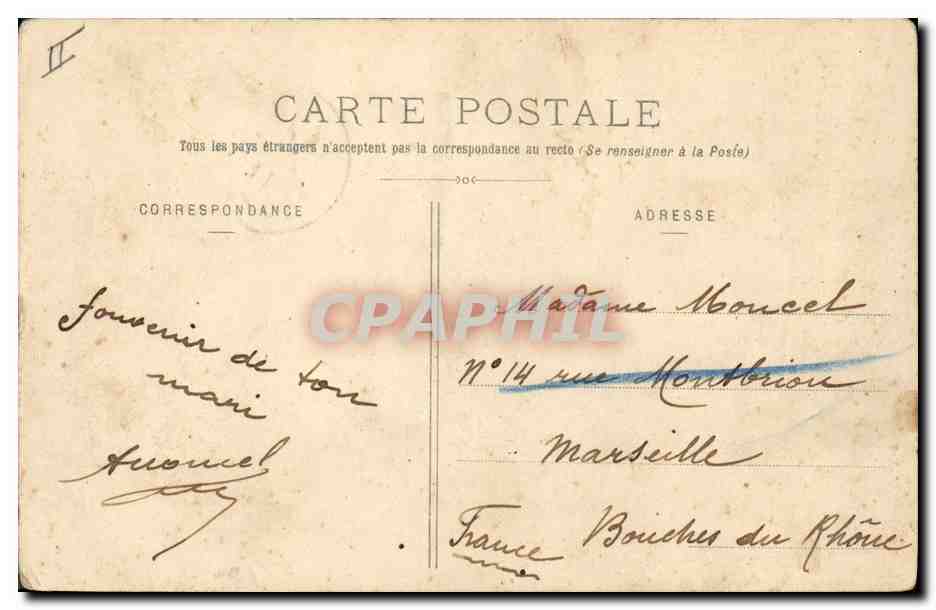 II
CARTE POSTALE
Tous les pays étrangers n'acceptent pas la correspondance au recto (Se renseigner à la Poste)
CORRESPONDANCE
Souvenir de ton
mari
ADRESSE
Madame Moncel
N° 14 rue Montbrion
Marseille
France Bouches du Rhône
CPAPHIL